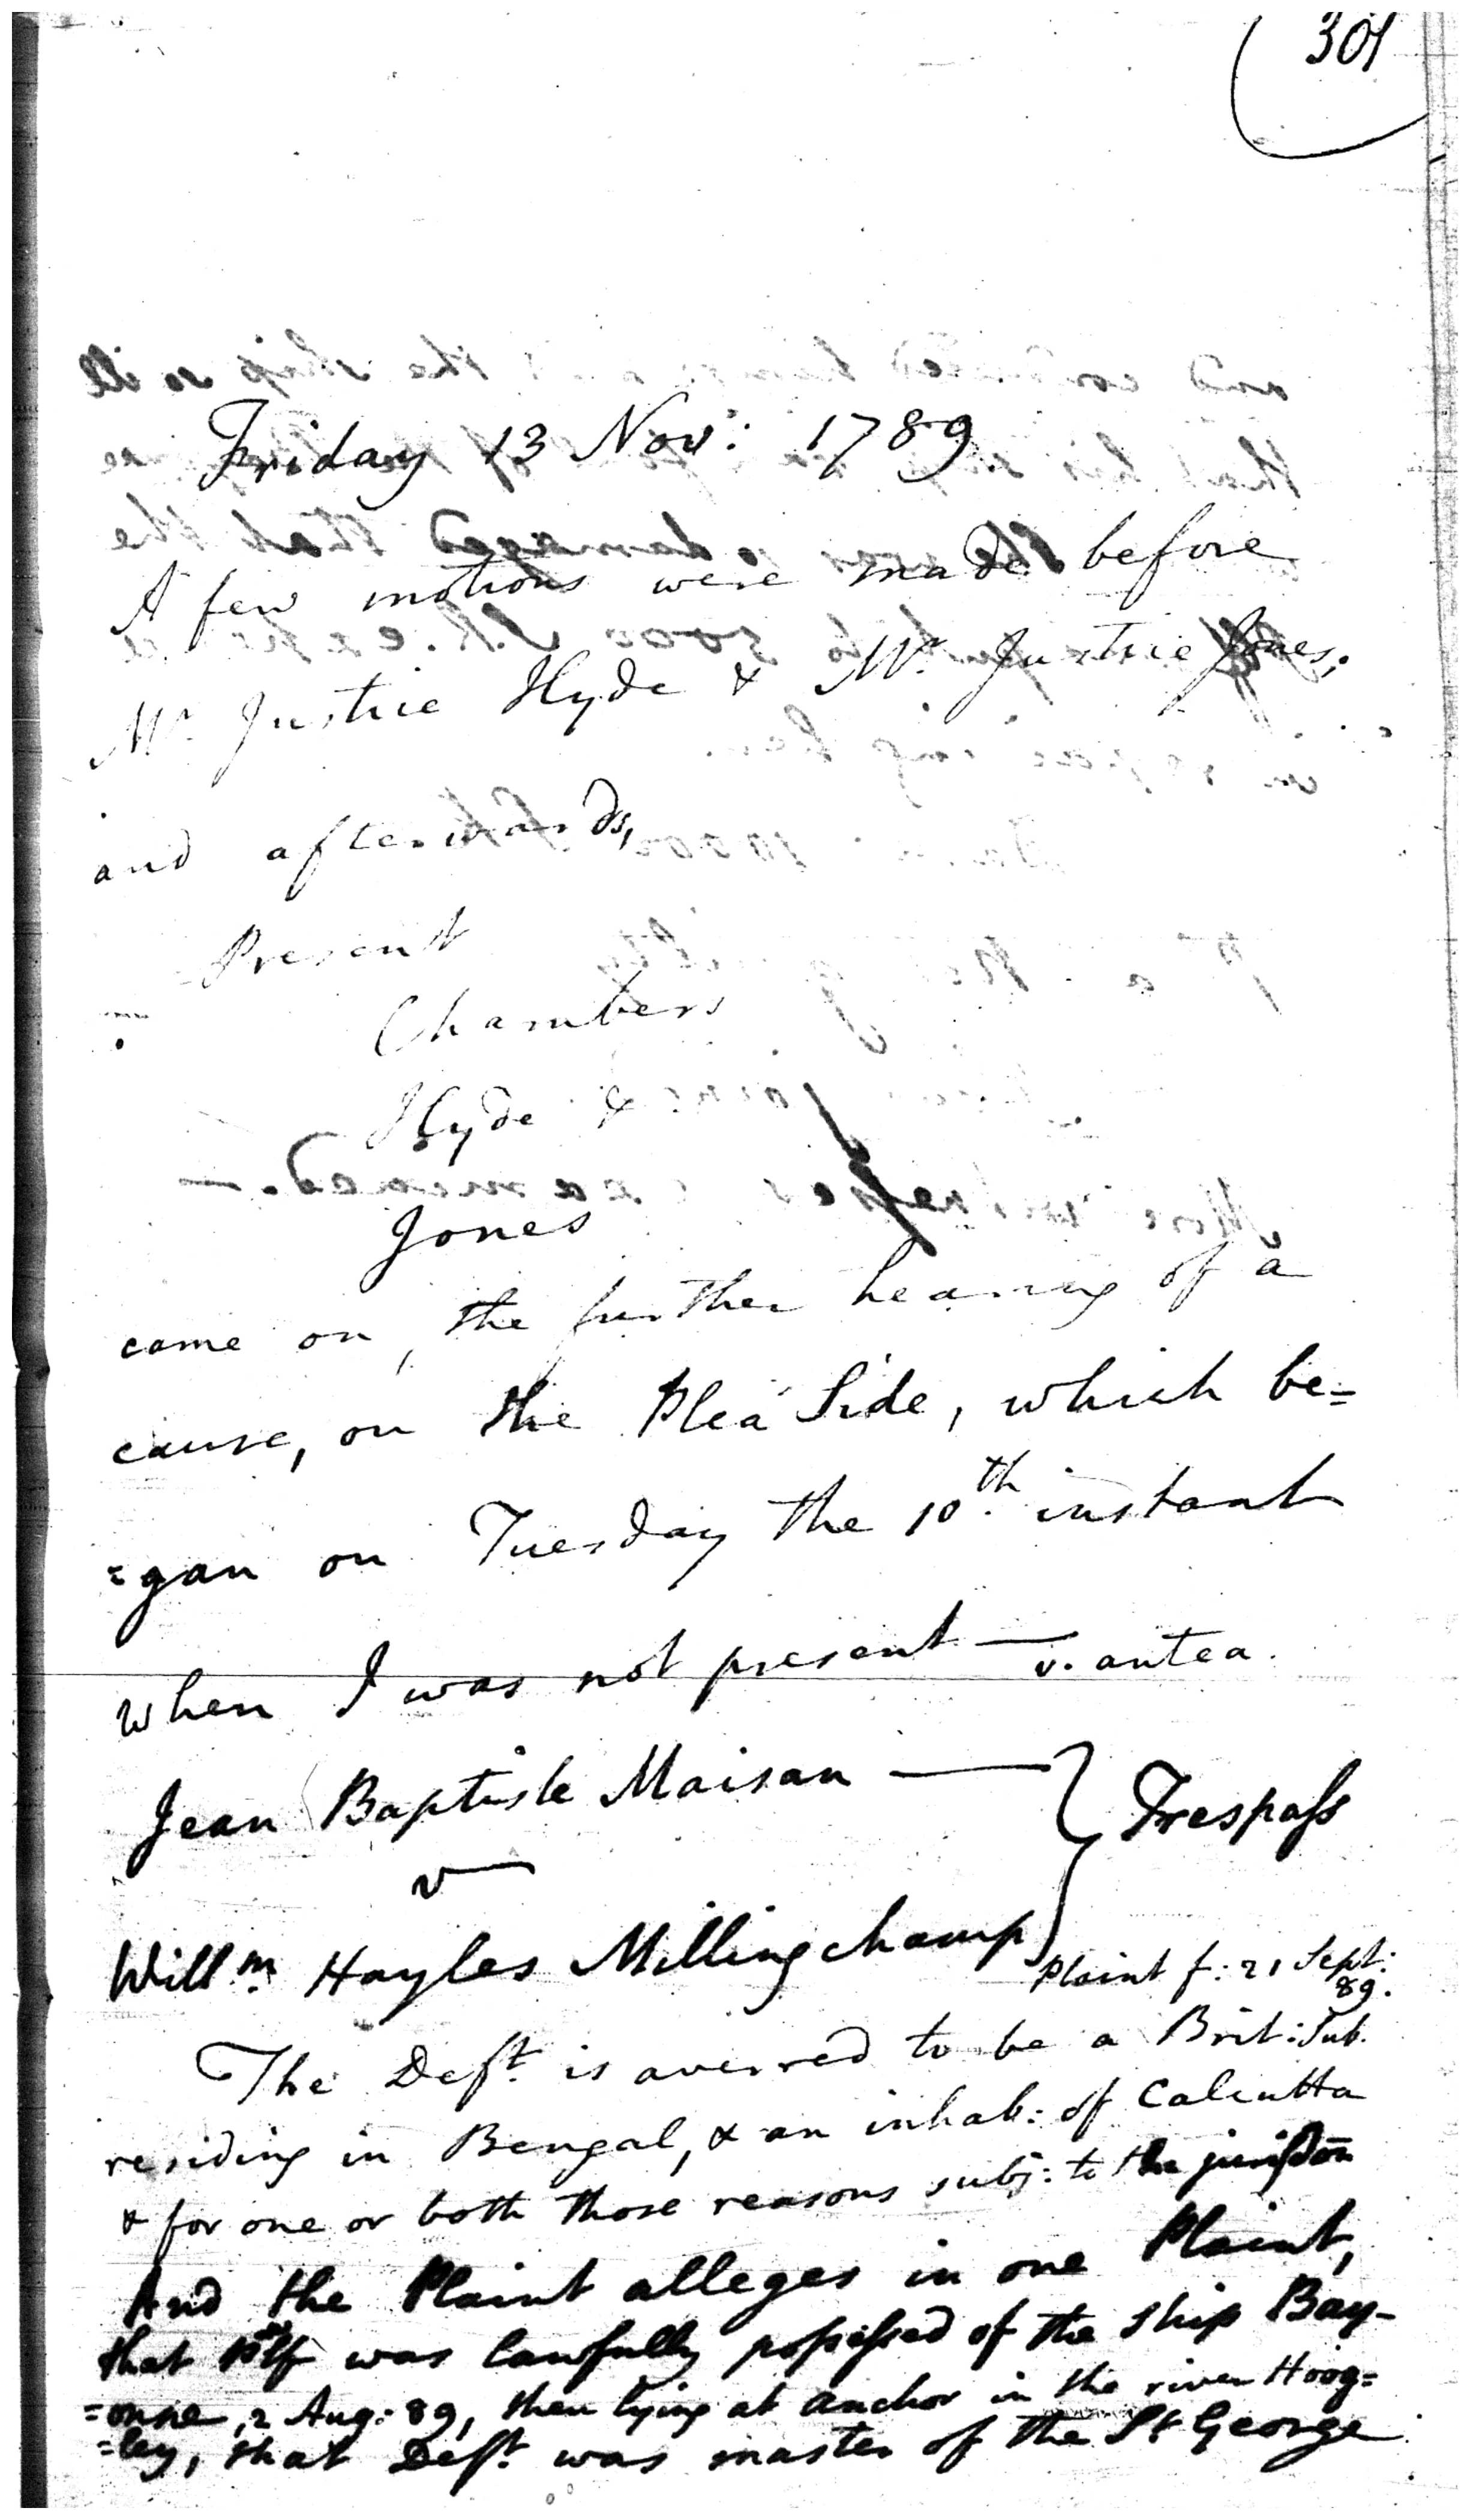 301
Friday 13 Nov: 1789
A few motions were made before
Mr. Justice Hyde & Mr. Justice Jones,
and afterwards,
Present
Chambers
Hyde &
Jones
came on, the further hearing of a
cause, on the Plea Side, which be=
=gan on Tuesday the 10th. instant
when I was not present — v. antea.
Jean Baptiste Maisan — } Trespass
v
Willm. Hayles Millingchamp
Plaint f: 21 Sept:
89.
The Deft. is averred to be a Brit: Sub.
residing in Bengal, & an inhab: of Calcutta
& for one or both those reasons subj: to the jurisdon
And the Plaint alleges in one Plaint,
that Pltf was lawfully possessed of the ship Bay-
=onne, 2 Aug: 89, then lying at anchor in the river Hoog=
=ley, that Deft. was master of the St George